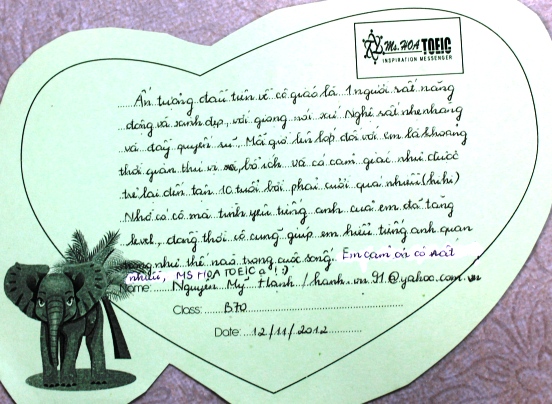 Ms. HOA TOEIC
INSPIRATION MESSENGER
Ấn tượng đầu tiên về cô giáo là 1 người rất năng
động và xinh đẹp, với giọng nói xứ Nghệ rất nhẹ nhàng
và đầy quyến rũ. Mỗi giờ lên lớp đối với em là khoảng
thời gian thú vị bổ ích và có cảm giác như được
trẻ lại đến tận 10 tuổi bởi phải cười quá nhiều (hihi)
Nhờ có cô mà tình yêu tiếng anh của em đã tăng
level, đồng thời cô cũng giúp em hiểu tiếng anh quan
trọng như thế nào trong cuộc sống. Em cảm ơn cô rất
nhiều, MS HOA TOEIC ạ! :)
Name: Nguyễn Mỹ Hạnh / hanh.vn.91@yahoo.com.vn
Class: B70
Date: 12/11/2012